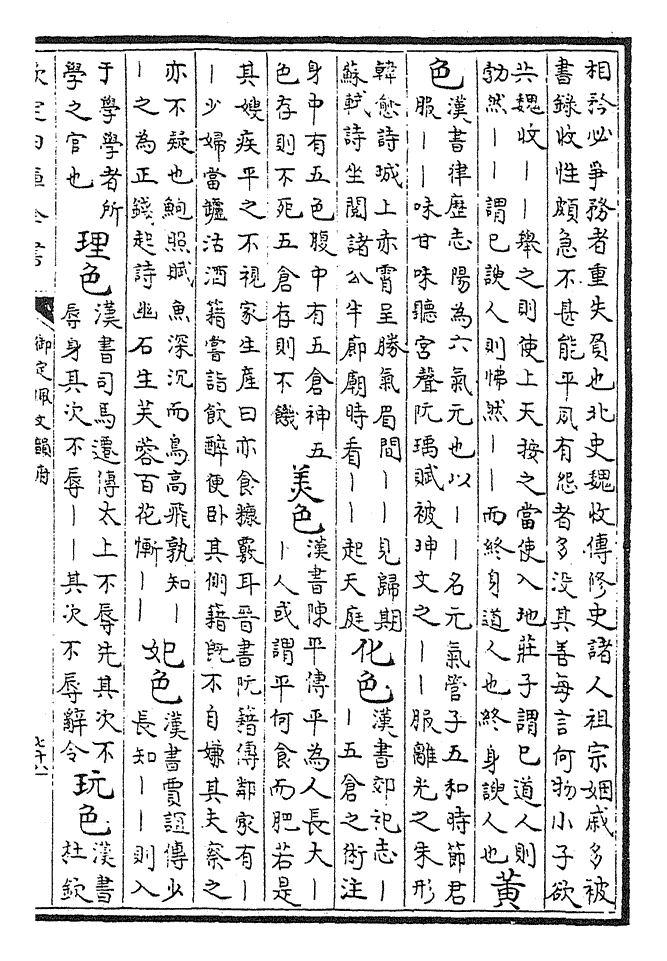 相矜必爭務者重失員也北史魏收傳修史諸人祖宗姻戚多被
書錄收性頗急不甚能平夙有怨者多没其善每言何物小子欲
共魏收丨丨舉之則使上天按之當使入地莊子謂已道人則
勃然丨丨謂已諛人則怫然丨丨而終身道人也終身諛人也
黃
色
漢書律歷志陽為六氣元也以丨丨名元氣管子五和時節君
服丨丨味甘味聽宮聲阮瑀賦被坤文之丨丨服離光之朱形
韓愈詩城上赤霄呈勝氣眉間丨丨見歸期
蘇軾詩坐閱諸公半廊廟時看丨丨起天庭
化色
漢書郊祀志丨
丨五倉之術注
身中有五色腹中有五倉神五
色存則不死五倉存則不饑
美色
漢書陳平傳平為人長大丨
丨人或謂平何食而肥若是
其嫂疾平之不視家生產曰亦食糠覈耳晉書阮籍傳鄰家有丨
丨少婦當壚沽酒籍嘗詣飲醉便臥其側籍既不自嫌其夫察之
亦不疑也鮑照賦魚深沉而鳥高飛孰知丨
丨之為正錢起詩幽石生芙蓉百花慚丨丨
妃色
漢書賈誼傳少
長知丨丨則入
于學學者所
學之官也
理色
漢書司馬遷傳太上不辱先其次不
辱身其次不辱丨丨其次不辱辭令
玩色
漢書
杜欽
欽定四庫全書
御定佩文韻府